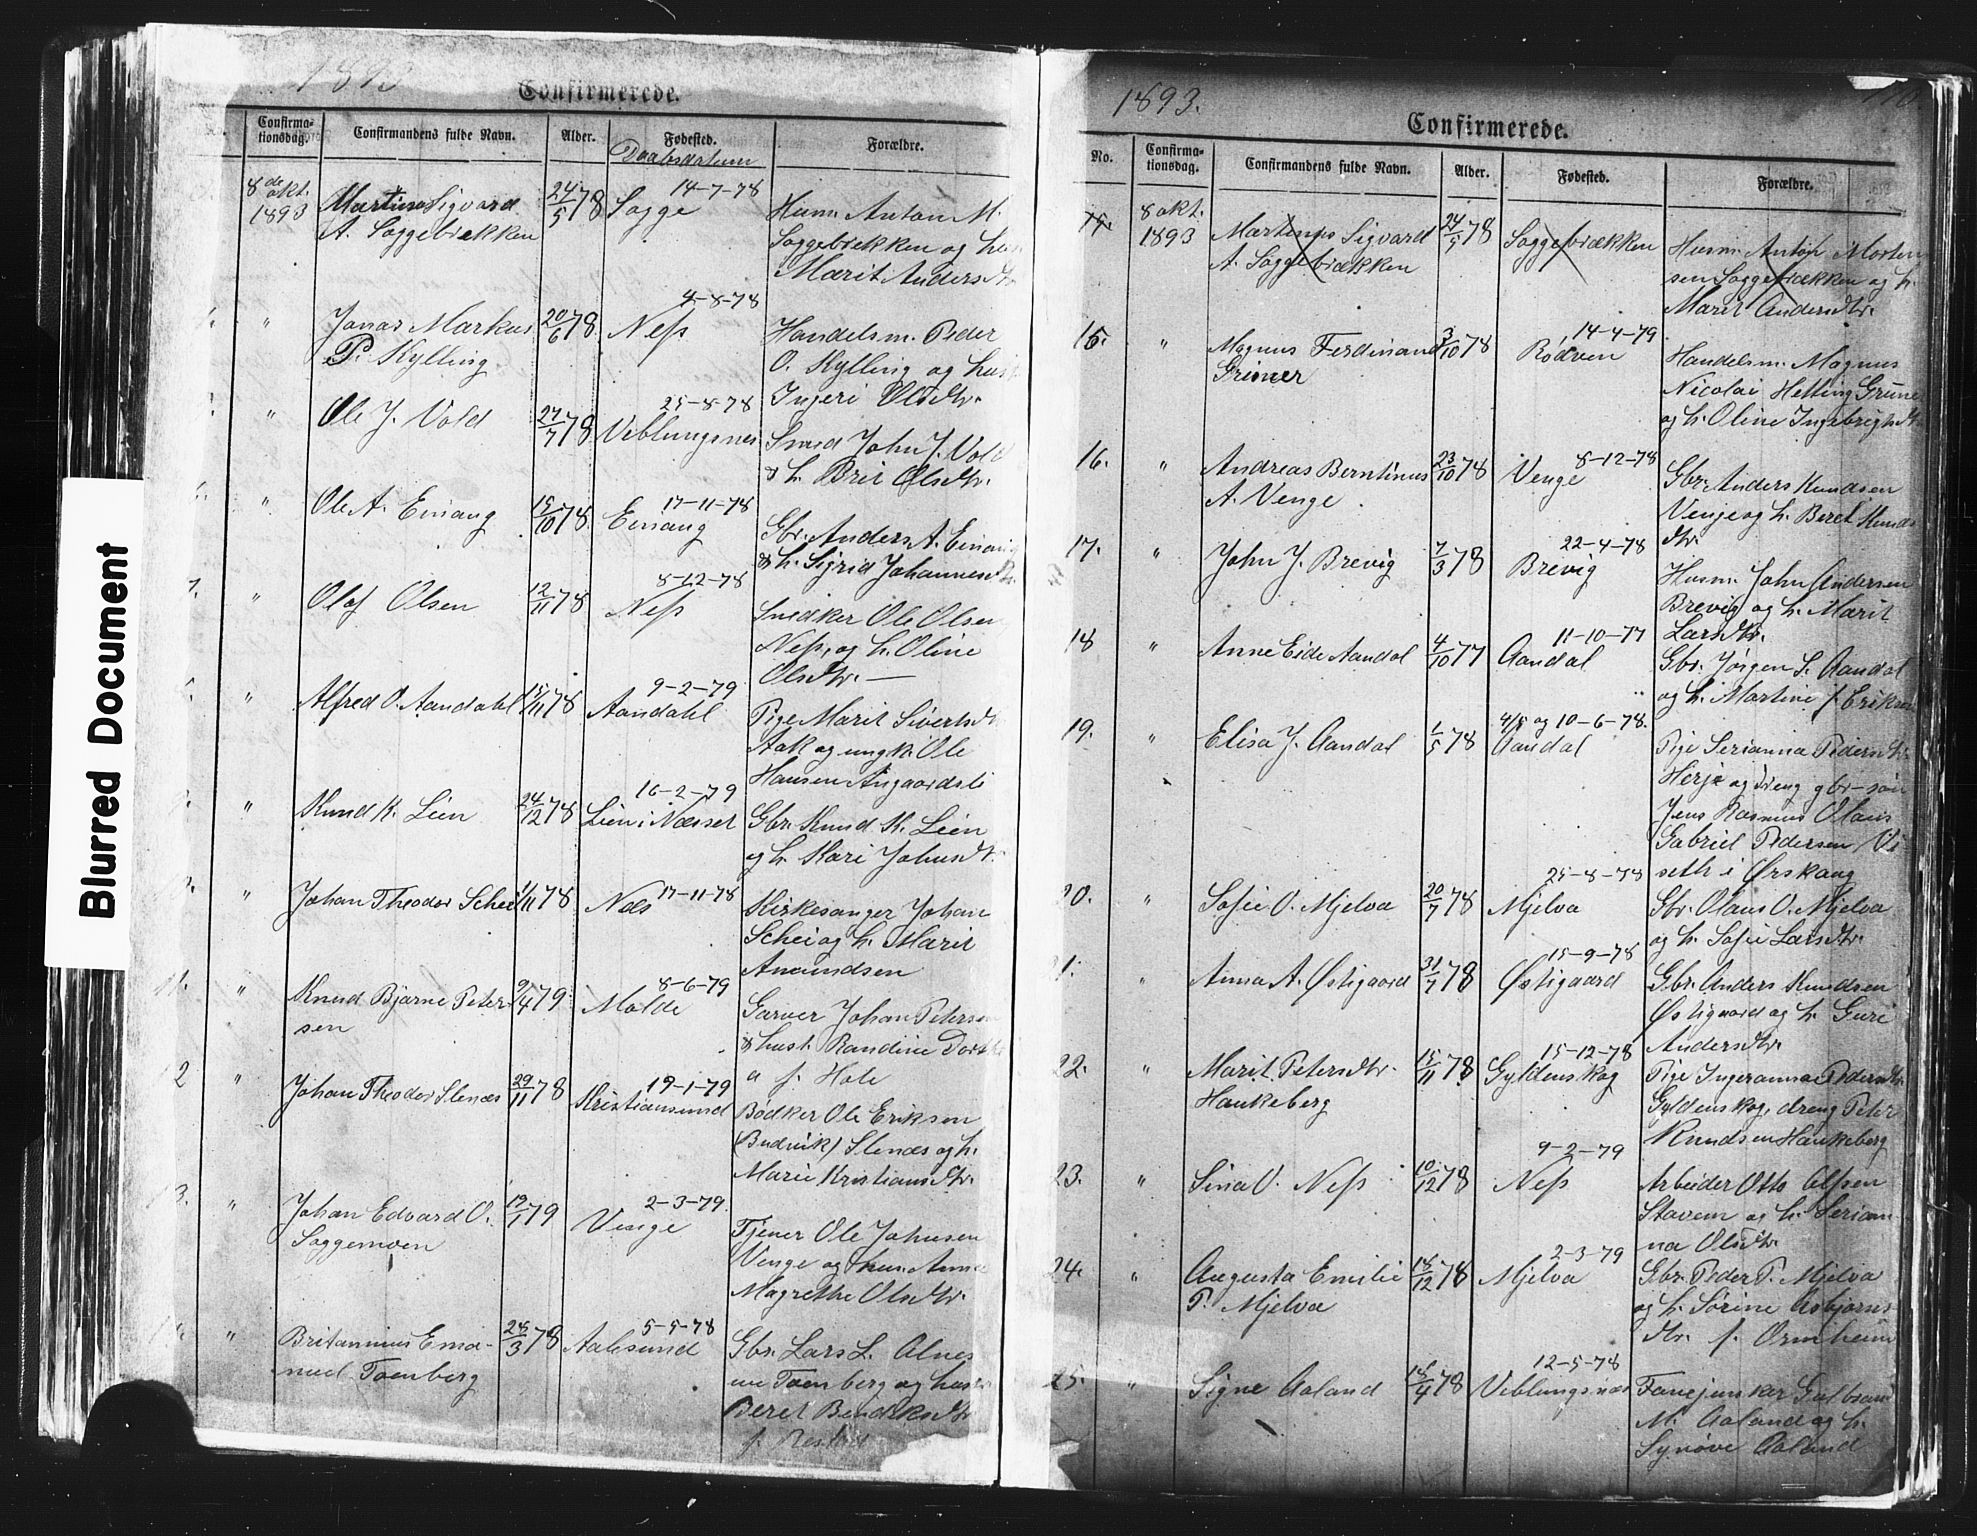 Blurred Document
1893
Confirmerede.
Confirma-
tionsdag.
Confirmandens fulde Navn.
Alder.
Fødested.
Daabsdatum
Forældre.
8de okt.
1893
Martinus Sigvard
A. Soggebrækken
24/5 78
14-7-78
Sogge
Husm. Anton M.
Soggebrækken og
Marit Andersdtr.
"
Jonas Markus
P. Kylling
20/6 78
4-8-78
Neſs
Handelsm. Peder
O. Kylling og hust
Ingeri Olsdtr.
"
Ole J. Vold
27/7 78
25-8-78
Veblungsnes
Smed John J. Vold
& h. Brit Olsdtr.
"
Ole A. Einang
15/10 78
17-11-78
Einang
Gbr. Anders A. Einang
& h. Sigrid Johannesdtr.
7.
"
Olaf Olsen
12/11 78
8-12-78
Neſs
Snedker Ole Olsen
Neſs, og h. Oline
Olsdtr. —
"
Alfred O. Aandahl
15/11 78
9-2-79
Aandahl
Pige Marit Sivertsdtr
Aak og ungk. Ole
Hansen Aasgaardsli
"
Knud K. Lien
24/12 78
16-2-79
Lien i Næsset
Gbr. Knud K. Lien
og h. Kari Johnsdtr.
"
Johan Theodor Schei
1/11 78
17-11-78
Næs
Kirkesanger Johan
Schei og h. Marit
Amundsen
11.
"
Knud Bjarne Peter-
sen
9/4 79
8-6-79
Molde
Garver Johan Petersen
& hust. Randine Dorthe
a f. Hole
2
"
Johan Theodor Stenæs
29/11 78
19-1-79
Kristiansund
Bødker Ole Eriksen
(Budvik) Stenæs og h.
Marie Kristiansdtr.
3.
"
Johan Edvard O.
Soggemoen
19/1 79
2-3-79.
Venge
Tjener Ole Johnsen
Venge og hus. Anne
Magrethe Olsdtr.
"
Britannius Ema-
nuel Toenberg
28/3 78
5-5-78
Aalesund
Gbr. Lars L. Alnes
Toenberg og hust
Beret Bendiksdtr
1893.
110.
Confirmerede.
No.
Confirma-
tionsdag.
Confirmandens fulde Navn.
Alder.
Fødested.
Forældre.
15.
8 okt.
1893
Martinus Sigvard
A. Soggebrækken
24/5 78
Soggebrækken
Husm. Anton Morten
sen Soggebrækken og h.
Marit Andersdtr.
15.
"
Magnus Ferdinand
Grüner
3/10 78
14-4-79
Rødven
Handelsm. Magnus
Nicolai Hetting Grüner
og h. Oline Ingebrigtsdtr
16.
"
Andreas Berntinus
A. Venge
23/10 78
8-12-78
Venge
Gbr. Anders Knudsen
Venge og h. Beret Knuds
dtr.
17.
"
John J. Brevig
7/3 78
22-4-78
Brevig
Husm. John Andersen
Brevig og h. Marit
Larsdtr.
18
"
Anne Eide Aandal
4/10 77
11-10-77
Aandal
Gbr. Jørgen S. Aandal
og h. Martine f. Eriksen
19.
"
Elisa J. Aandal
1/5 78
4/5 og 10-6-78.
Aandal
Pige Serianna Pedersdtr.
Herje og dreng gbr-søn
Jens Rasmus Olaus
Gabriel Pedersen Vi-
seth i Ørskoug
20.
"
Sofie O. Mjelva
20/7 78
25-8-78
Mjelva
Gbr. Olaus O. Mjelva
og h. Sofie Larsdtr.
21.
"
Anna A. Østigaard
31/7 78
15-9-78
Østigaard
Gbr. Anders Knudsen
Østigaard og h. Guri
Andersdtr.
22.
"
Marit Petersdtr.
Haukeberg
15/11 78
15-12-78
Gyldenskog
Pige Ingeranna Pedersdtr.
Gyldenskog, dreng Peter
Knudsen Haukeberg
23.
"
Sina O. Neſs
10/12 78
9-2-79
Neſs
Arbeider Otto Olsen
Stavem og h. Serian-
na Olsdtr.
24.
"
Augusta Emilie
P. Mjelva
18/12 78
2-3-79
Mjelva
Gbr. Peder P. Mjelva
og h. Sørine Asbjørns
dtr. f. Ormheim
25.
"
Signe Aaland
18/4 78
12-5-78
Veblungsnæs
Fanejunker Gulbrand
M. Aaland og h.
Synøve Aaland